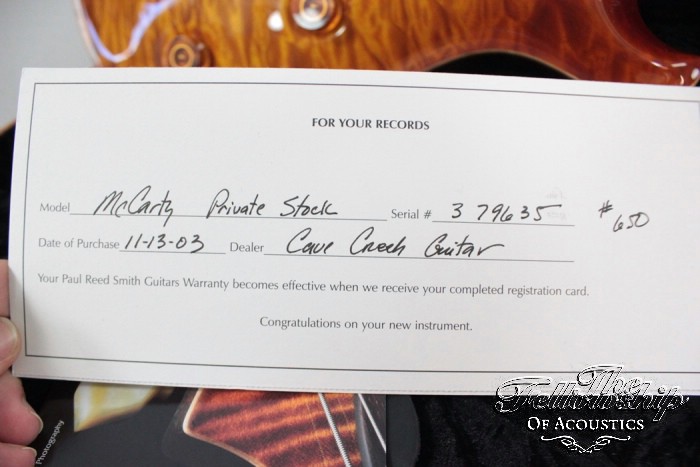 FOR YOUR RECORDS
Model McCarty Private Stock Serial # 3 79635 #650
Date of Purchase 11-13-03 Dealer Cave Creek Guitar
Your Paul Reed Smith Guitars Warranty becomes effective when we receive your completed registration card.
Congratulations on your new instrument.
Photography
The
Fellowship
OF ACOUSTICS